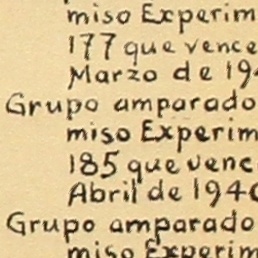 miso Experim
177 que vence
Marzo de 194
Grupo amparado
miso Experim
185 que venc
Abril de 1940
Grupo amparado
miso Experim